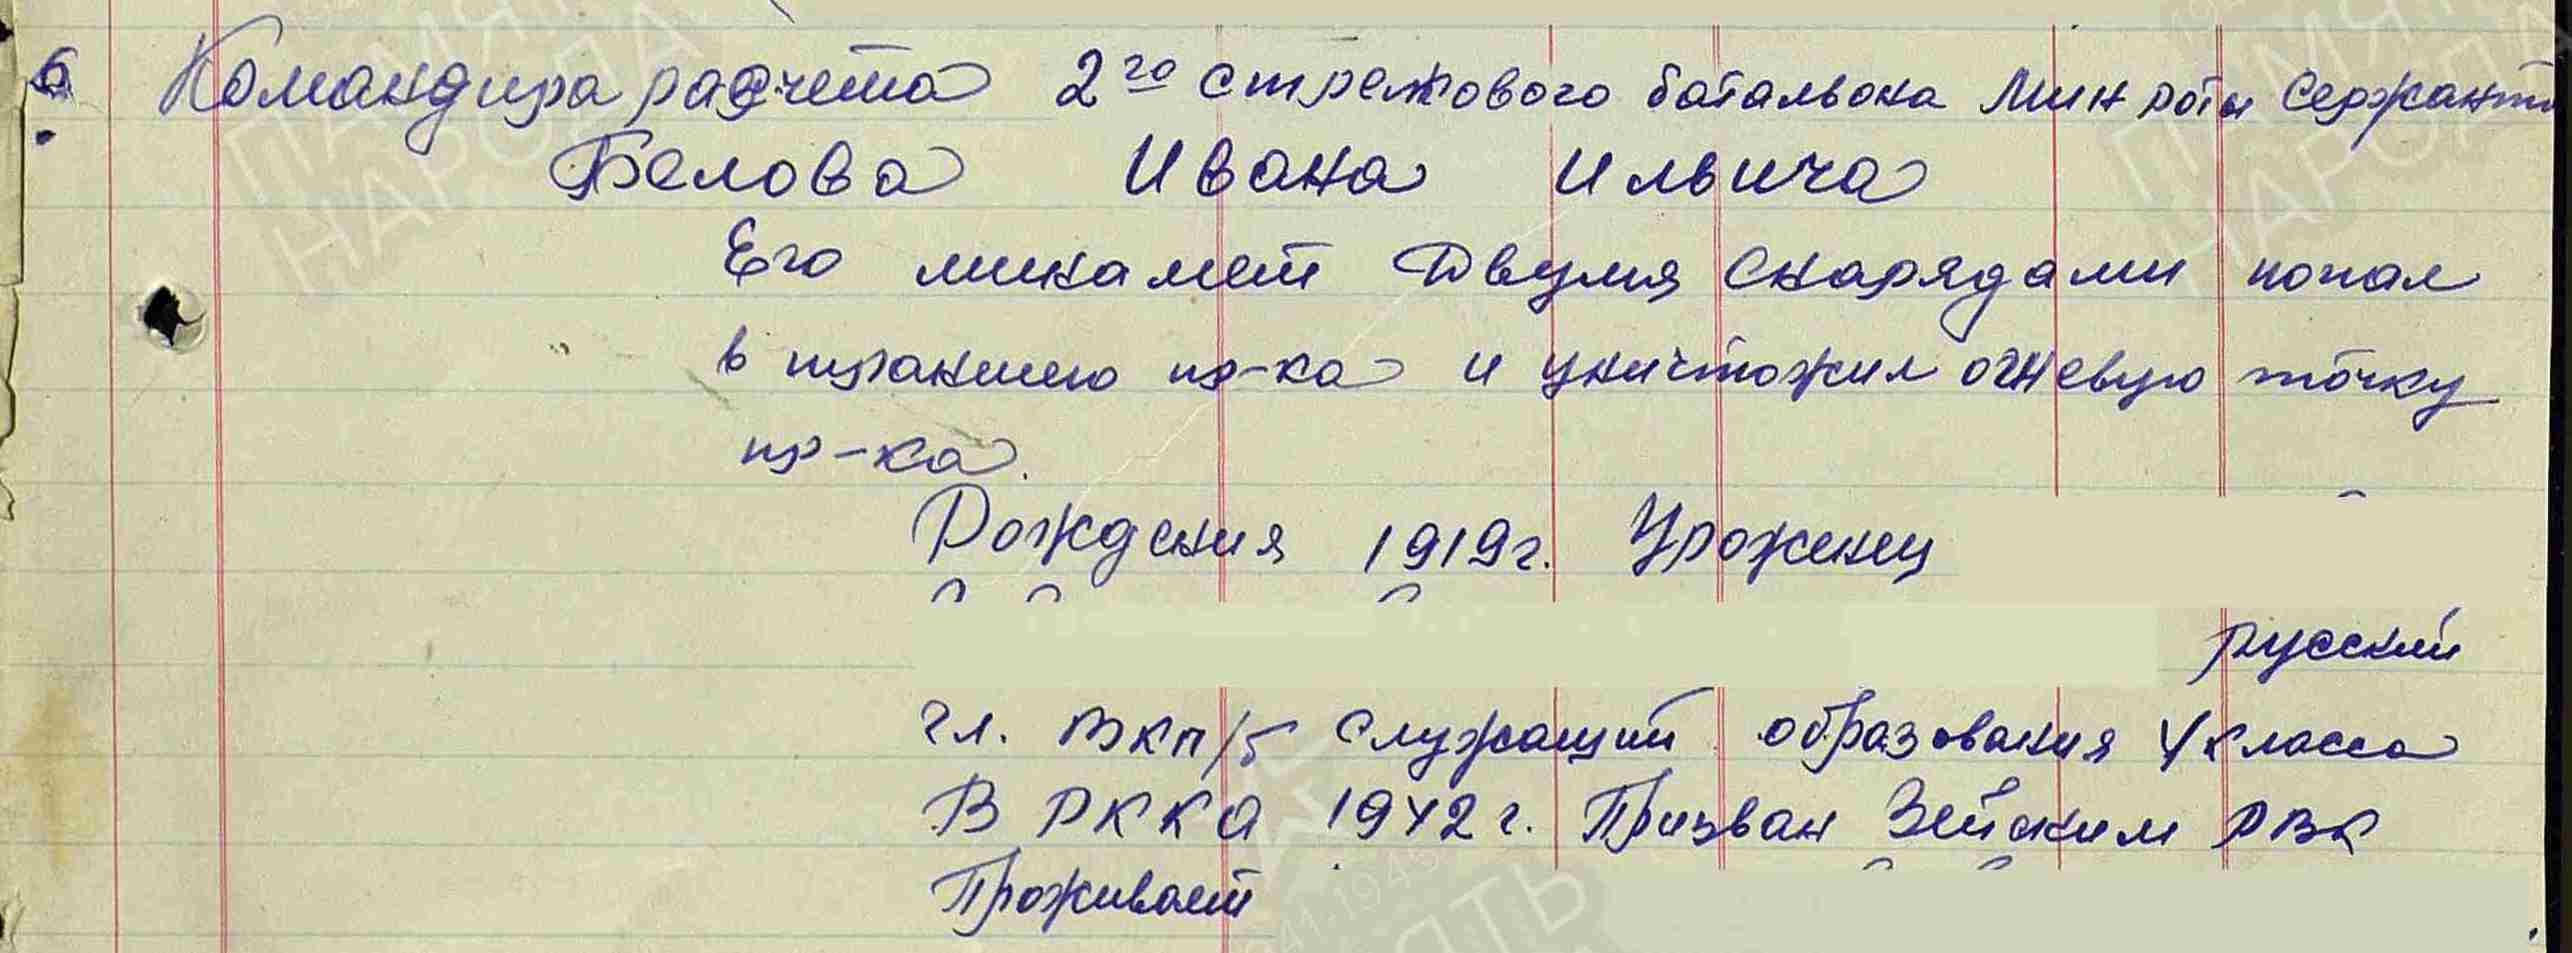 6. Командира расчета 2го стрелкового батальона Мин роты Сержанта
Белова Ивана Ильича
Его минамет двумя снарядами попал
в траншею пр-ка и уничтожил огневую точку
пр-ка.
Рождения 1919г. Уроженец
русский
чл. ВКП/б служащий образования 4 класса
В РККА 1942 г. Призван Зейским РВК
Проживает